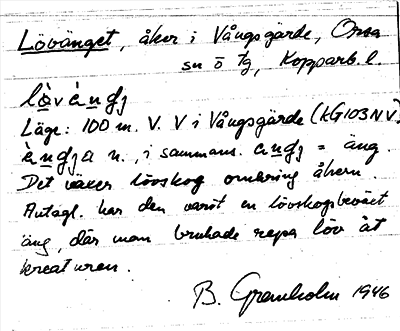 Lövänget, åker i Vångsgärde, Orsa
sn o tg, Kopparb. l.
lòvàngj
Läge: 100 m. V. V i Vångsgärde (KG103NV)
àngja n., i sammans. angj = äng.
Det växer lövskog omkring åkern.
Antagl. har den varit en lövskogsbevuxet
äng, där man brukade repa löv åt
kreaturen.
B. Granholm 1946